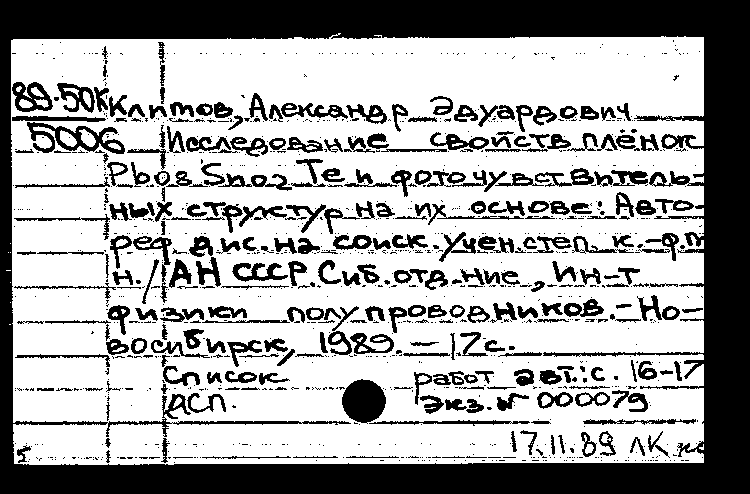 89-50К Климов, Александр Эдуардович
5006 Исследование свойств плёнок
Pb08 Sn02 Te и фоточувствитель-
ных структур на их основе: Авто-
реф. дис. на соиск. учен. степ. к. ф.-м
н. / АН СССР. Сиб. отд-ние, Ин-т
физики полупроводников. - Но-
восибирск, 1989. - 17 с.
Список работ авт.: с. 16-17
ДСП. Экз. № 000079
17.11.89 ЛК
5